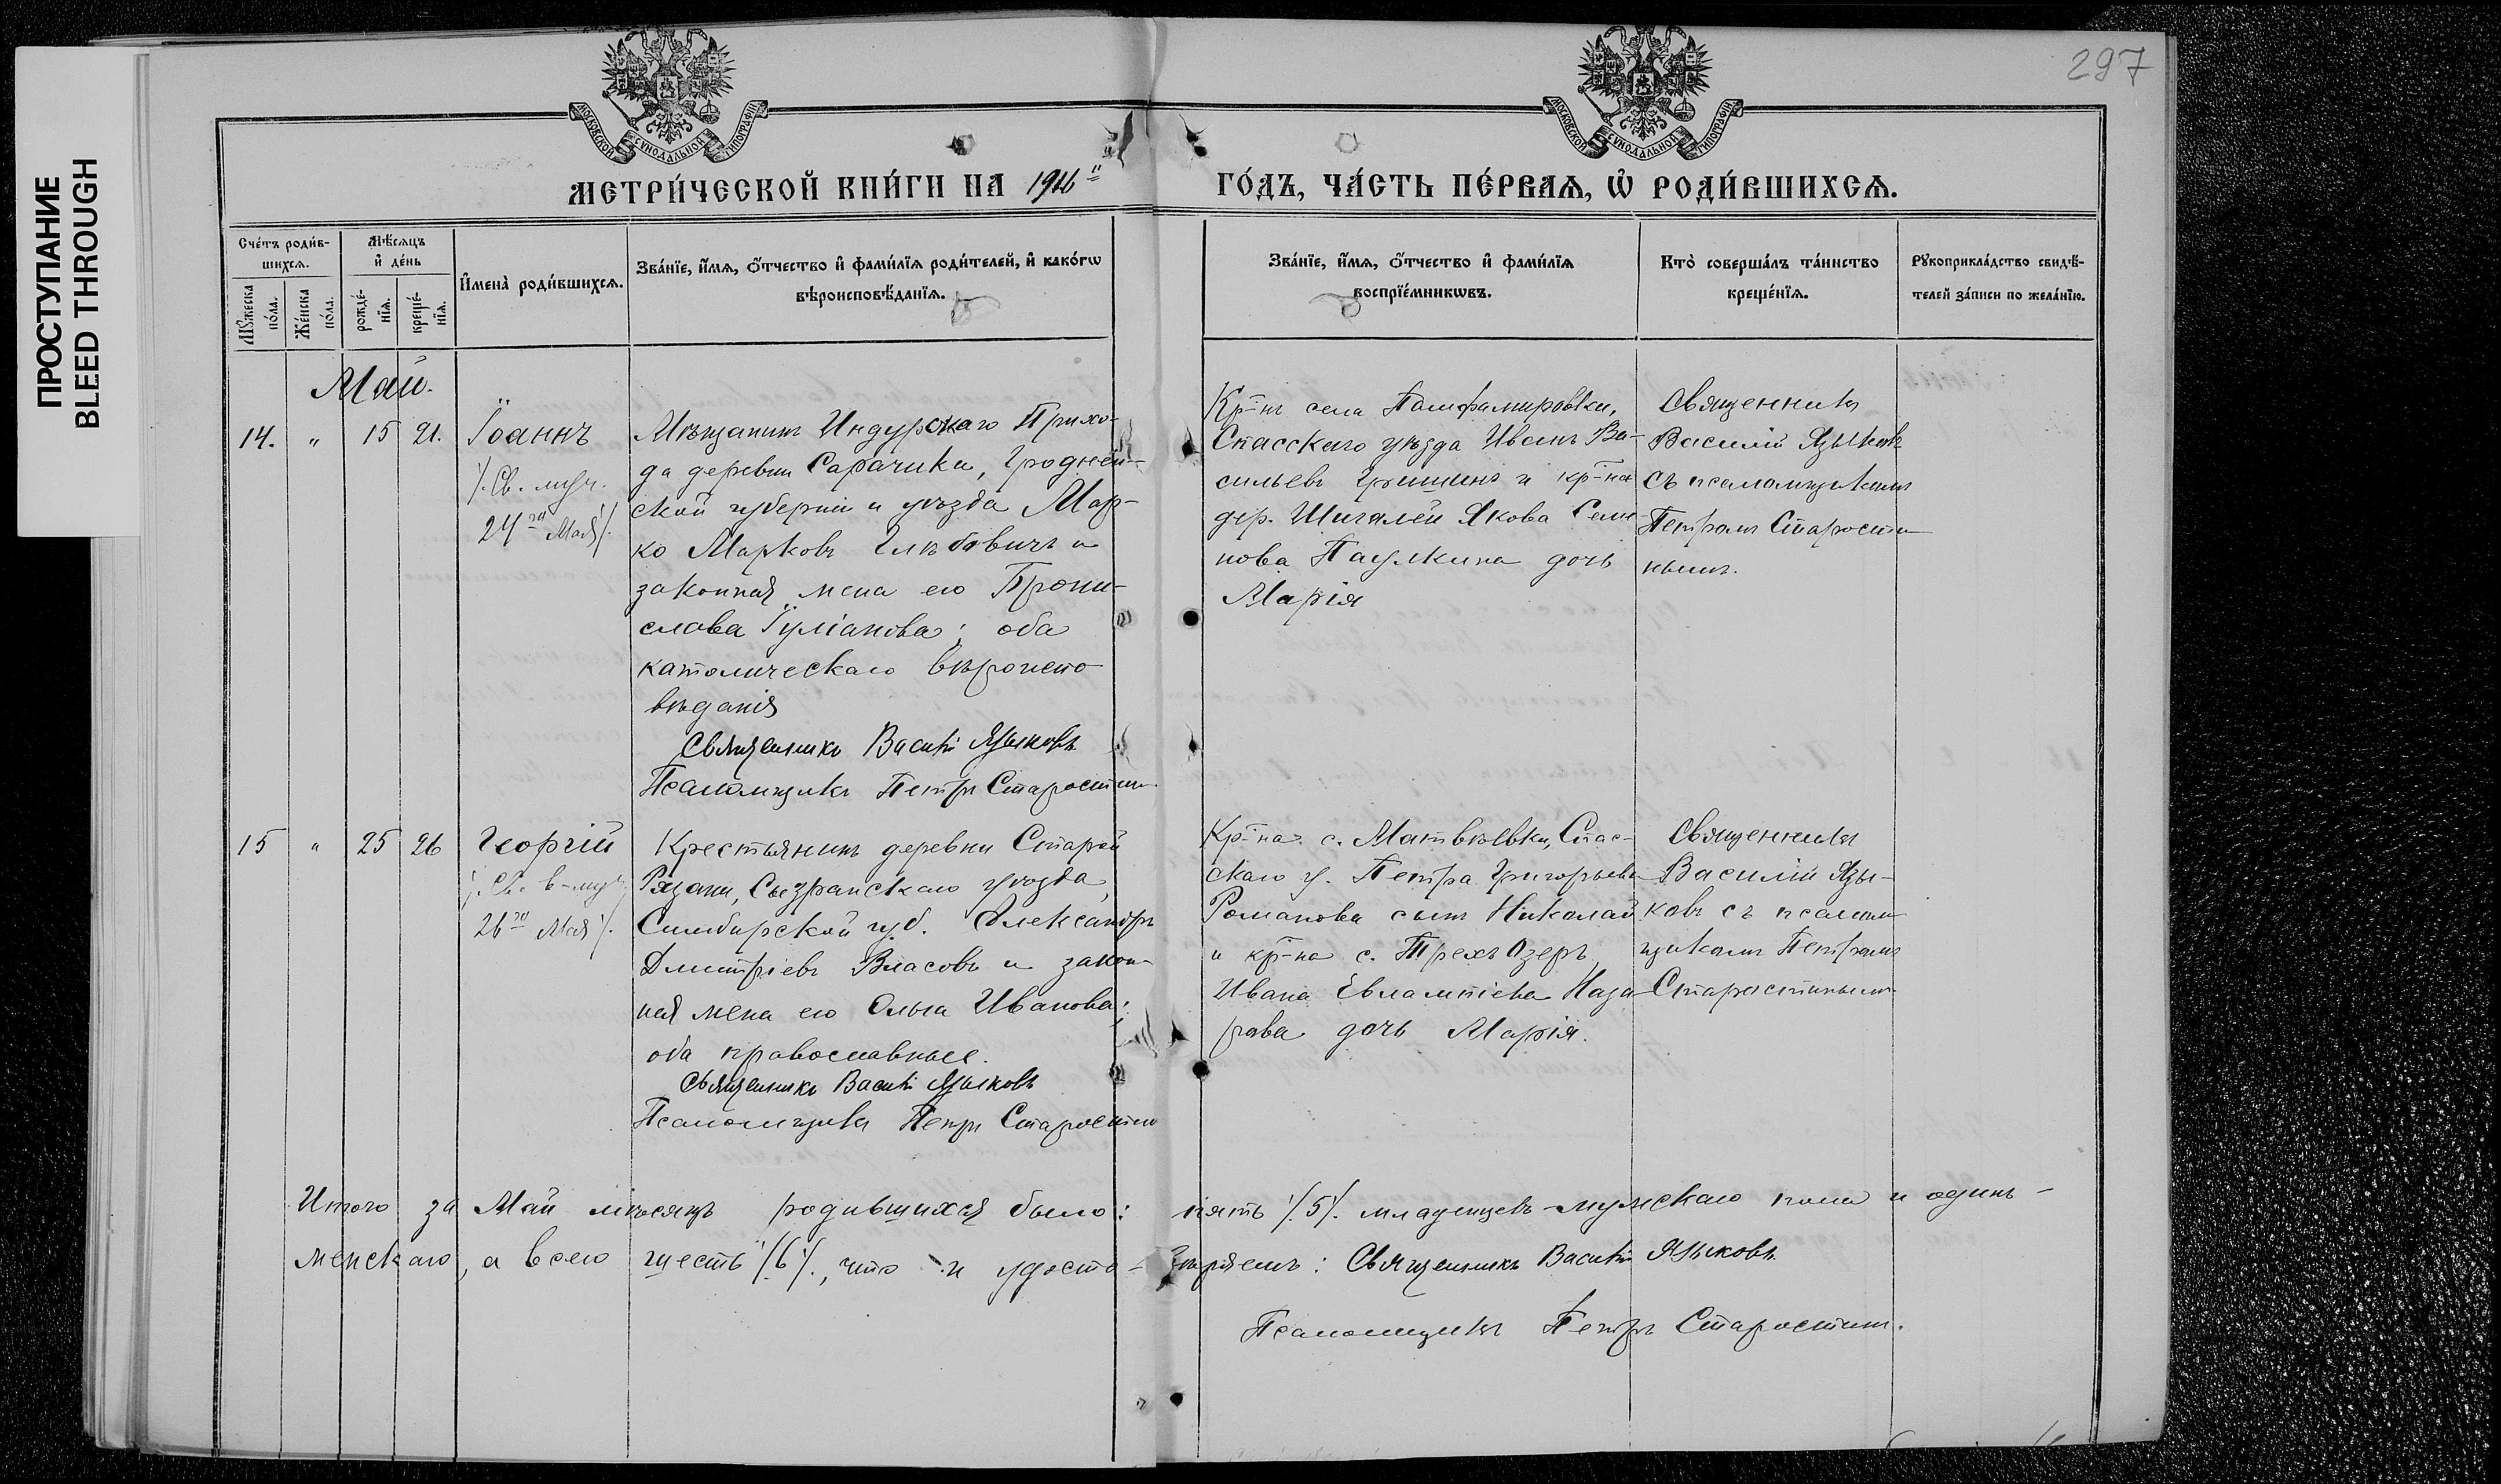 ПРОСТУПАНИЕ
BLEED THROUGH
297
МОСКОВСКОЙ СѴНОДАЛЬНОЙ ТИПОГРАФІИ
МОСКОВСКОЙ СѴНОДАЛЬНОЙ ТИПОГРАФІИ
МЕТРИ́ЧЕСКОЙ КНИ́ГИ НА 1916й
ГО́ДЪ, ЧА́СТЬ ПЕ́РВАѦ, Ѡ҆ РОДИ́ВШИХСѦ.
Сче́тъ роди́в-
шихсѧ.
Мꙋ́жеска
по́ла.
Же́нска
по́ла.
Мѣ́сѧцъ
и҆ де́нь
рожде́-
нїѧ.
креще́-
нїѧ.
И҆мена̀ роди́вшихсѧ.
Зва́нїе, и҆́мѧ, ѻ҆́тчество и҆ фами́лїѧ роди́телей, и҆ како́гѡ
вѣроисповѣ́данїѧ.
Зва́нїе, и҆́мѧ, ѻ҆́тчество и҆ фами́лїѧ
воспрїе́мникѡвъ.
Кто̀ соверша́лъ та́инство
креще́нїѧ.
Рꙋкоприкла́дство свидѣ́-
телей за́писи по жела́нїю.
Май.
14. " 15 21.
Іоаннъ
/. Св. муч.
24го Мая /.
Мѣщанинъ Индурскаго Прихо-
да деревни Сарачики, Гроднен-
ской губерніи и уѣзда Мар-
ко Марковъ Глѣбовичъ и
законная жена его Брони-
слава Іуліанова; оба
католическаго вѣроиспо-
вѣданія
Священникъ Василій Языковъ
Псаломщикъ Петръ Старостинъ
Кр-нъ села
Спасскаго уѣзда Иванъ Ва-
сильевъ Гришинъ и кр-на
дер. Шигалей Якова Семе-
нова Паулкина дочь
Марія
Священникъ
Василій Языковъ
съ псаломщикомъ
Петромъ Старости-
нымъ.
15 " 25 26
Георгій
/. Св. в-муч.
26го Мая /.
Крестьянинъ деревни Старой
Рязани, Сызранскаго уѣзда,
Симбирской губ. Александръ
Дмитріевъ Власовъ и закон-
ная жена его Ольга Иванова;
оба православные.
Священникъ Василій Языковъ
Псаломщикъ Петръ Старостинъ
Кр-на с. Матвѣевки, Спас-
скаго у. Петра Григорьева
Романова сынъ Николай
и кр-на с. Трехъ Озеръ
Ивана Евлампіева Наза-
рова дочь Марія.
Священникъ
Василій Язы-
ковъ съ псалом-
щикомъ Петромъ
Старостинымъ.
Итого за Май мѣсяцъ родившихся было: пять /. 5 /. младенцевъ мужскаго пола и одинъ -
женскаго, а всего шесть /. 6 /., что и удосто-вѣряемъ: Священникъ Василій Языковъ
Псаломщикъ Петръ Старостинъ.